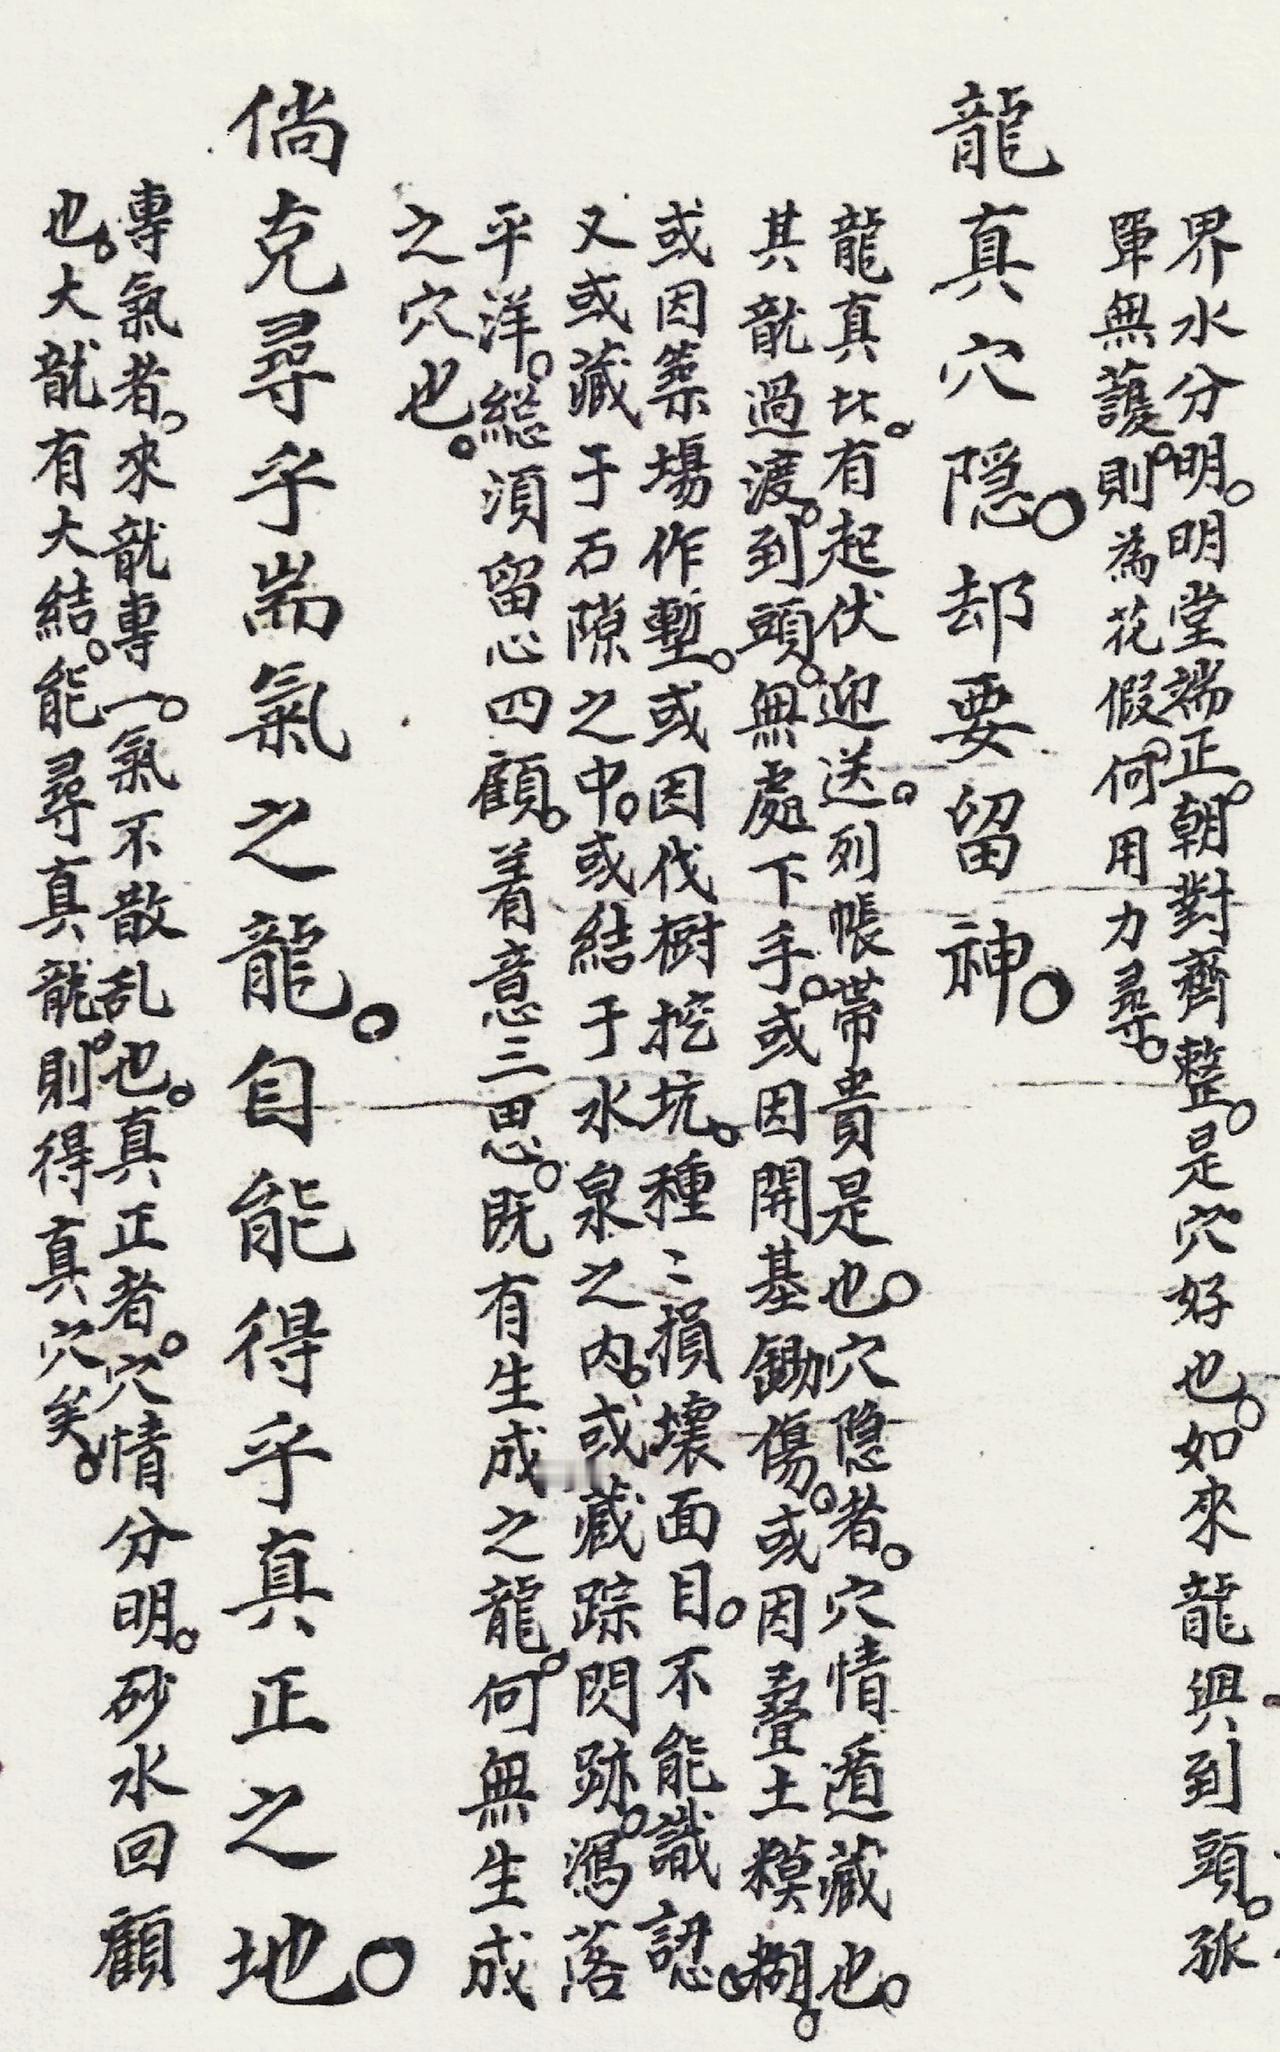 界水分明。明堂端正。朝對齊整。是穴好也。如來龍興到頭。孤
單無護。則為花假。何用力尋。
龍真穴隐。却要留神。
龍真比。有起伏迎送。列帳帶貴是也。穴隐者。穴情遁藏也。
其龍過渡。到頭。無處下手。或因開基鋤傷。或因叠土糢糊。
或因築場作塹。或因伐樹挖坑。種〻損壞面目。不能識認。
又或藏于石隙之中。或結于水泉之内。或藏踪閃跡。瀉落
平洋。総須留心四顧。着意三思。既有生成之龍。何無生成
之穴也。
倘克尋乎耑氣之龍。自能得乎真正之地。
專氣者。來龍專一。氣不散乱也。真正者。穴情分明。砂水回顧
也。大龍有大結。能尋真龍。則得真穴矣。